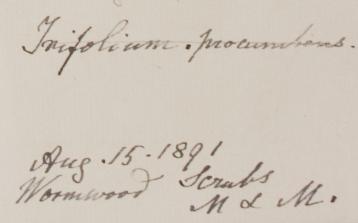 Trifolium. procumbens.
Aug. 15. 1891
Wormwood Scrubs
M & M.